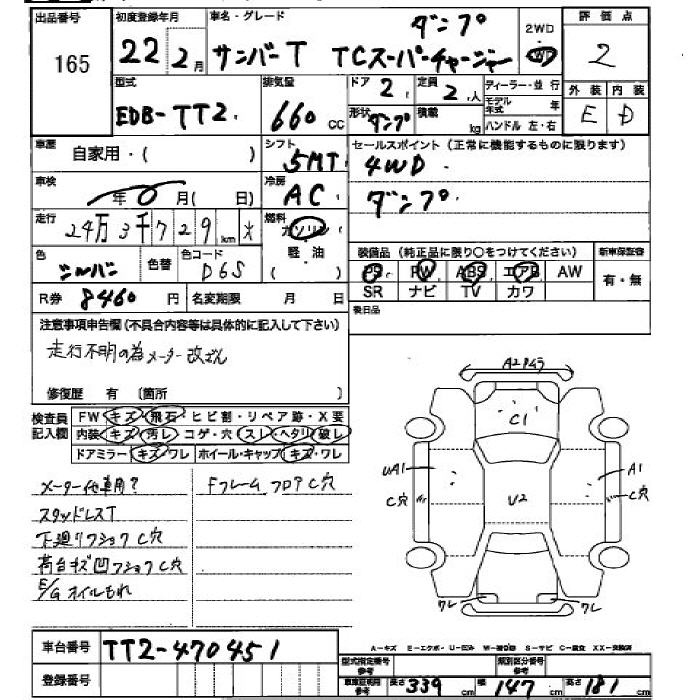 出品番号 初度登録年月 車名・グレード 評価点
165 22 2月 サンバーT TCスーパーチャージャー ダンプ 2WD 2
型式 排気量 ドア 2 定員 2人 ディーラー・並行 外装 内装
EDB-TT2 660cc 形状 ダンプ 積載 kg モデル年式 年 ハンドル 左・右 E D
車歴 自家用・( ) シフト 5MT セールスポイント(正常に機能するものに限ります)
車検 年0月( 日) 冷房 AC 4WD
ダンプ
走行 24万3千729km 燃料 ガソリン
色 シルバー 色替 色コード D6S 軽・油 装備品(純正品に限り〇をつけてください) 新車保証書
PS PW ABS エアB AW 有・無
R券 8460円 名変期限 月 日 SR ナビ TV カワ
後日品
注意事項申告欄(不具合内容等は具体的に記入して下さい)
走行不明の為メーター改ざん
修復歴 有 〔箇所 〕
検査員記入欄 FW キズ・飛石・ヒビ割・リペア跡・X要
内装 キズ・汚レ・コゲ・穴・スレ・ヘタリ・破レ
ドアミラー キズ・ワレ ホイール・キャップ キズ・ワレ
メーター他車用? Fフレーム フロアC穴
スタッドレスT
下廻リフショクC穴
荷台キズ凹フショクC穴
E/Gオイルもれ
A2
C1
UA1 A1
C穴 U2 C穴
ワレ ワレ
車台番号 TT2-470451
A-キズ E-エクボ U-凹ミ W-補修跡 S-サビ C-腐食 XX-交換済
登録番号 型式指定番号 類別区分番号
車庫証明用参考 長さ 339cm 幅参考 147cm 高さ参考 181cm